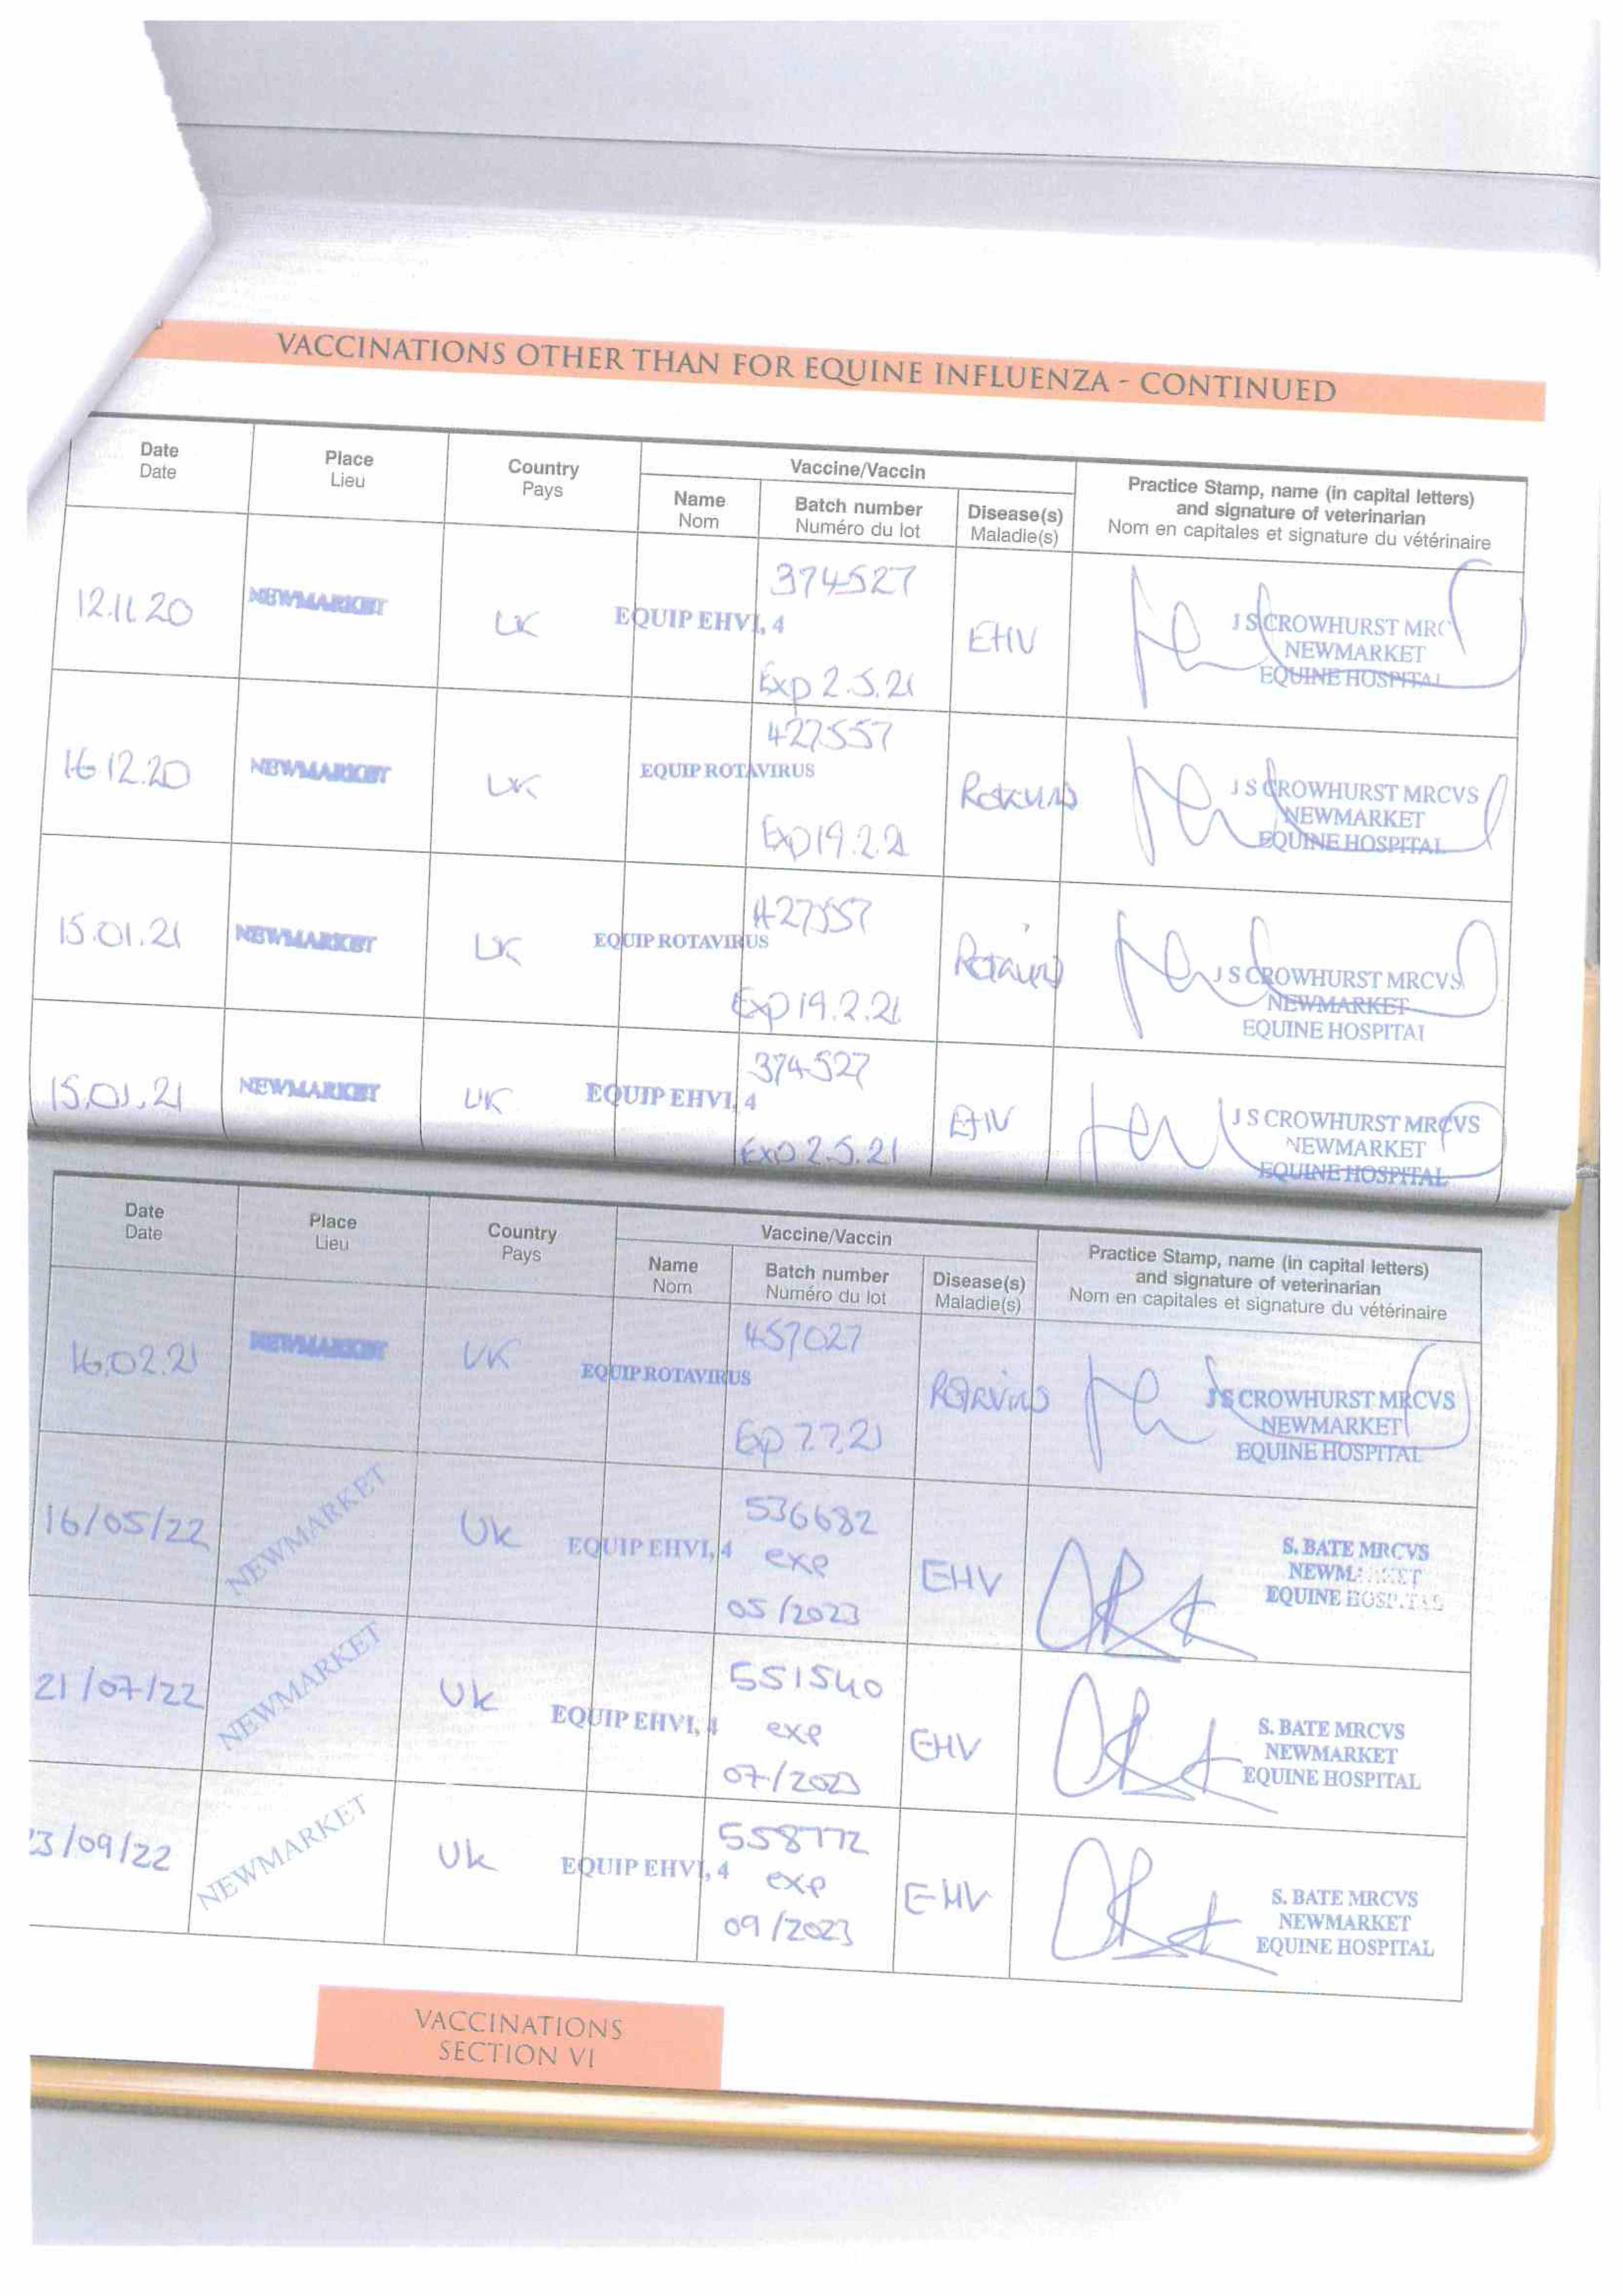 VACCINATIONS OTHER THAN FOR EQUINE INFLUENZA - CONTINUED
Date
Date
Place
Lieu
Country
Pays
Vaccine/Vaccin
Name
Nom
Batch number
Numéro du lot
Disease(s)
Maladie(s)
Practice Stamp, name (in capital letters)
and signature of veterinarian
Nom en capitales et signature du vétérinaire
12.11.20
NEWMARKET
UK
EQUIP EHV1, 4
374527
Exp 2.5.21
EHV
J S CROWHURST MRC
NEWMARKET
EQUINE HOSPITAL
16.12.20
NEWMARKET
UK
EQUIP ROTAVIRUS
427557
Exp 19.2.21
J S CROWHURST MRCVS
NEWMARKET
EQUINE HOSPITAL
15.01.21
NEWMARKET
UK
EQUIP ROTAVIRUS
427557
Exp 19.2.21
Rotavirus
J S CROWHURST MRCVS
NEWMARKET
EQUINE HOSPITAL
15.01.21
NEWMARKET
UK
EQUIP EHV1, 4
374527
Exp 2.5.21
EHV
J S CROWHURST MRCVS
NEWMARKET
EQUINE HOSPITAL
Date
Date
Place
Lieu
Country
Pays
Vaccine/Vaccin
Name
Nom
Batch number
Numéro du lot
Disease(s)
Maladie(s)
Practice Stamp, name (in capital letters)
and signature of veterinarian
Nom en capitales et signature du vétérinaire
16.02.21
NEWMARKET
UK
EQUIP ROTAVIRUS
457027
Exp 7.7.21
J S CROWHURST MRCVS
NEWMARKET
EQUINE HOSPITAL
16/05/22
NEWMARKET
UK
EQUIP EHV1, 4
536682
exp
05/2023
EHV
S. BATE MRCVS
NEWMARKET
EQUINE HOSPITAL
21/07/22
NEWMARKET
UK
EQUIP EHV1, 4
551540
exp
07/2023
EHV
S. BATE MRCVS
NEWMARKET
EQUINE HOSPITAL
3/09/22
NEWMARKET
UK
EQUIP EHV1, 4
558772
exp
09/2023
EHV
S. BATE MRCVS
NEWMARKET
EQUINE HOSPITAL
VACCINATIONS
SECTION VI